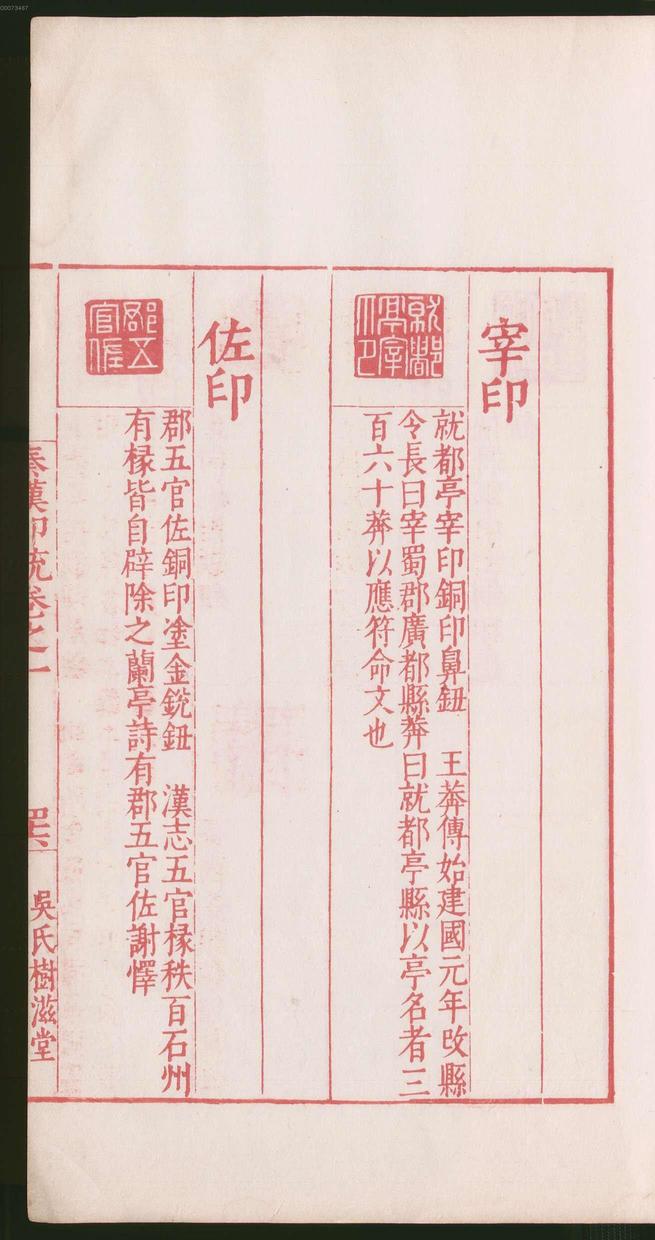 00073467
宰印
就都亭宰印
就都亭宰印銅印鼻鈕　王莽傳始建國元年改縣
令長曰宰蜀郡廣都縣莽曰就都亭縣以亭名者三
百六十莽以應符命文也
佐印
郡五官佐
郡五官佐銅印塗金銳鈕　漢志五官椽秩百石州
有椽皆自辟除之蘭亭詩有郡五官佐謝懌
秦漢印統卷之一
吳氏樹滋堂